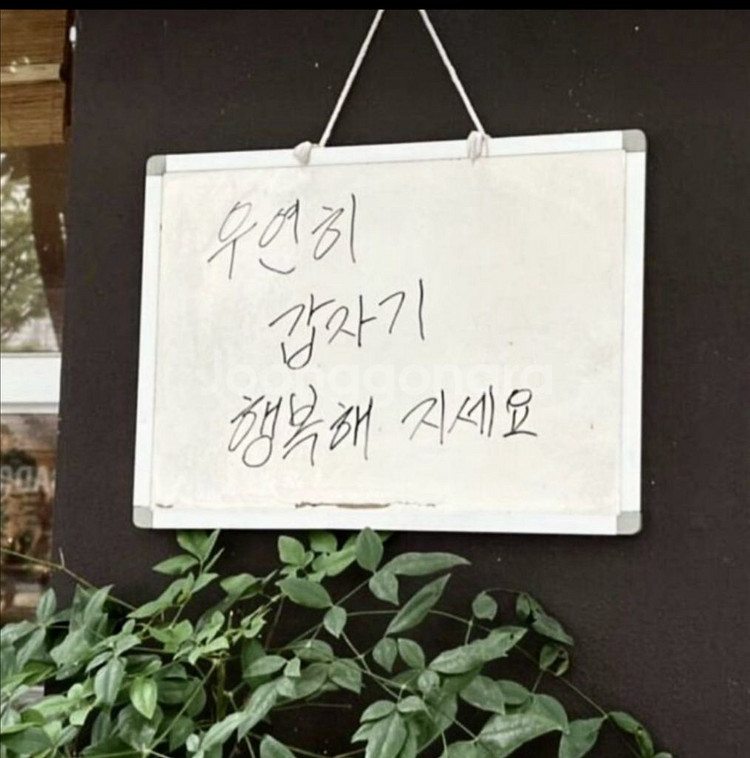 우연히
갑자기
행복해 지세요
Joonggonara